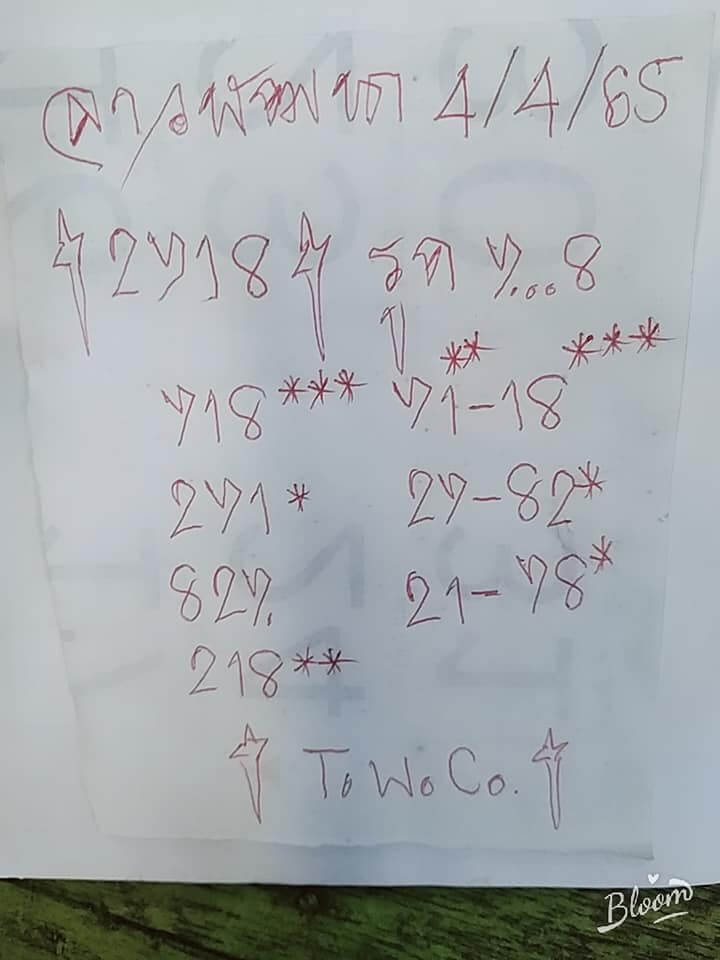 ลาวพัฒนา 4/4/65
2718 รูด 7...8
718*** 71**-18***
271* 27-82*
827. 21-78*
218**
To Wo Co.
Bloom